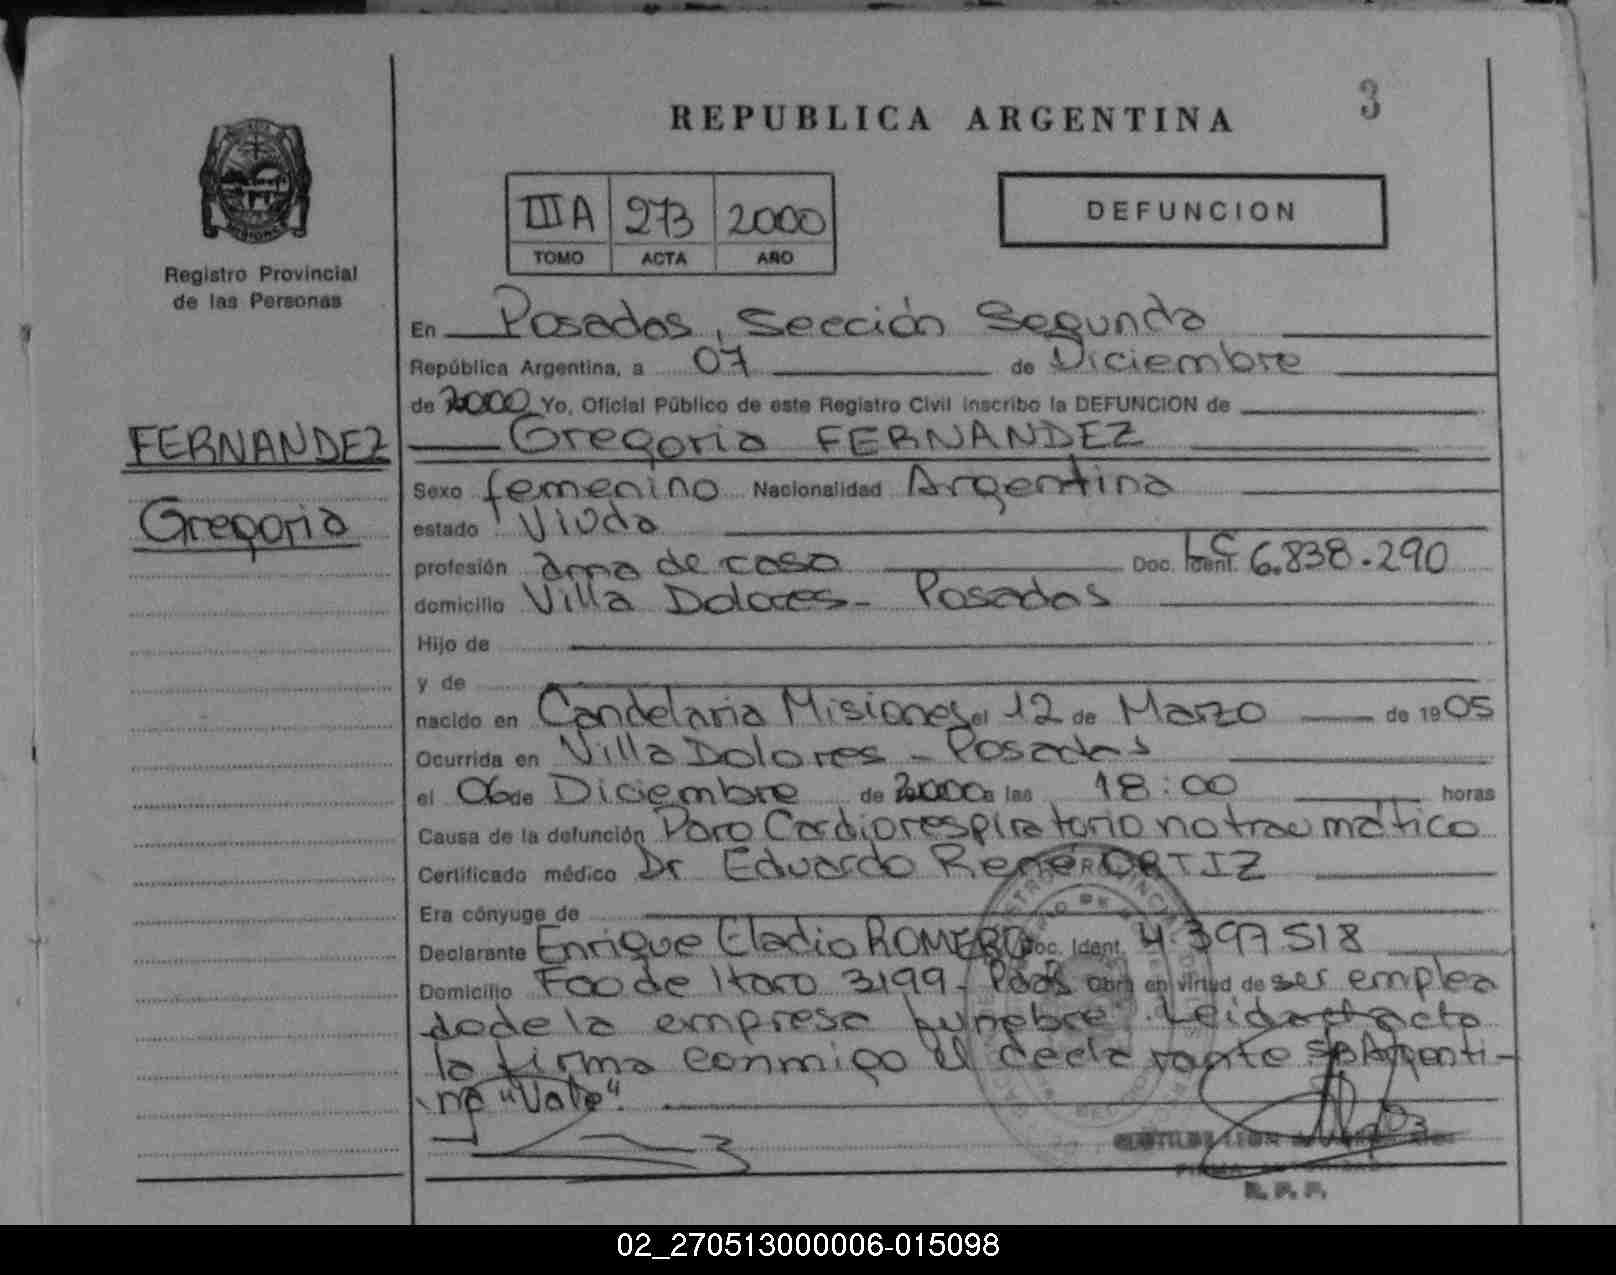 3
REPUBLICA ARGENTINA
IIIA 273 2000
TOMO ACTA AÑO
DEFUNCION
MISIONES
Registro Provincial
de las Personas
FERNANDEZ
Gregoria
En Posadas, Sección Segunda
República Argentina, a 07 de Diciembre
de 2000 Yo, Oficial Público de este Registro Civil inscribo la DEFUNCION de
Gregoria FERNANDEZ
Sexo femenino Nacionalidad Argentina
estado Viuda
profesión ama de casa Doc. Ident. LC 6.838.290
domicilio Villa Dolores - Posadas
Hijo de
y de
nacido en Candelaria Misiones el 12 de Marzo de 1905
Ocurrida en Villa Dolores - Posadas
el 06 de Diciembre de 2000 a las 18:00 horas
Causa de la defunción Paro Cardiorespiratorio no traumático
Certificado médico Dr Eduardo René ORTIZ
Era cónyuge de
Declarante Enrique Eladio ROMERO Doc. Ident. 4.397518
Domicilio Fco de Haro 3199 - Pdas Obra en virtud de ser emplea
do de la empresa funebre. Leida el acta
la firma conmigo el declarante
na "Vale".
R. P. P.
02_270513000006-015098